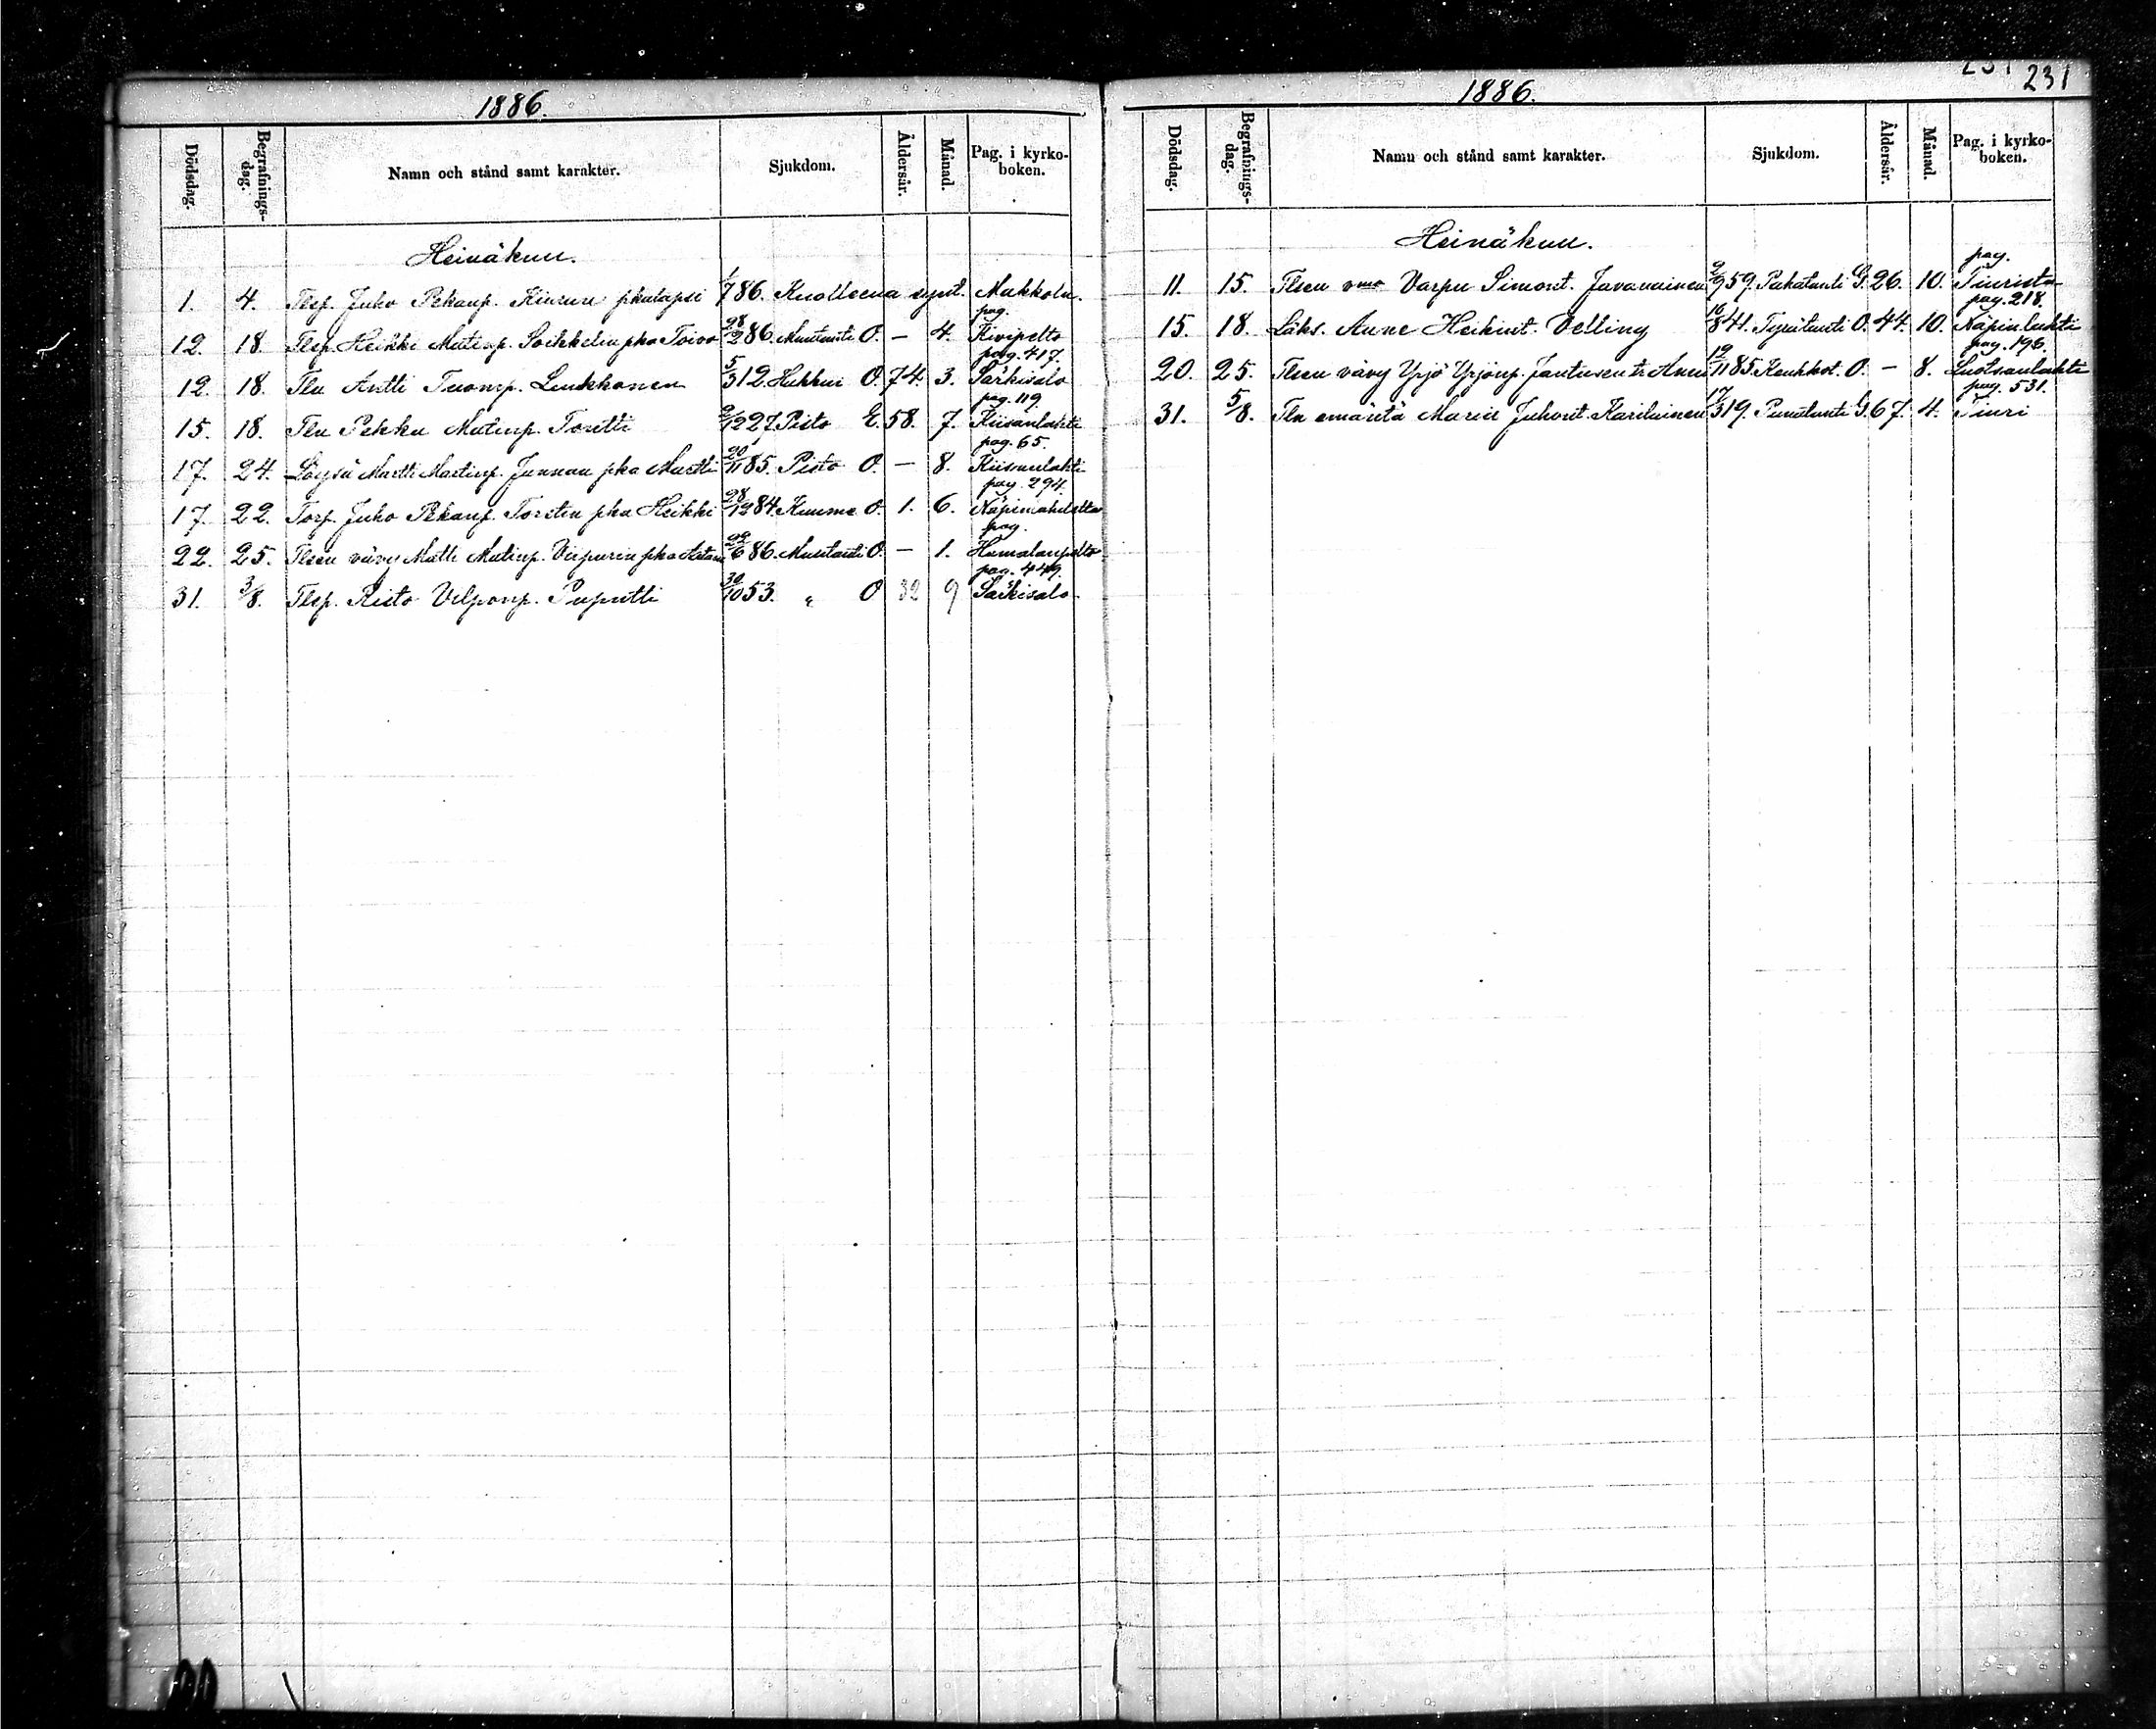 231
1886.
Dödsdag. Begrafnings-dag. Namn och stånd samt karakter. Sjukdom. Åldersår. Månad. Pag. i kyrko-boken.
Heinäkuu.
1. 4. Tlsp. Juho Pekanp. Kiurun pkalapsi 1/7 86. Kuolleena synt. Makkola.
pag.
12. 18. Tlsp. Heikki Matinp. Soikkelin pka Toivo 28/2 86. Muutauti O. — 4. Kivipelto
pag. 417.
12. 18. Tln Antti Tuomp. Luukkonen 5/3 12. Hukkui O. 74. 3. Särkisalo
pag. 119
15. 18. Tln Pekka Matinp. Toritti 2/12 27. Pisto E. 58. 7. Kiisanlahti
pag. 65.
17. 24. Löysä Matti Martinp. Junnan pka Martti 20/11 85. Pisto O. — 8. Kiisanlahti
pag. 294.
17. 22. Torp. Juho Pekanp. Toritin pka Heikki 28/12 84. Kuume O. 1. 6.
pag.
22. 25. Tlsen vävy Matti Matinp. Viipurin pka 22/6 86. Muutauti O. — 1. Humalanpelto
pag. 449.
31. 3/8. Tlsp. Risto Vilponp. Puputti 30/10 53. " O 32 9 Särkisalo
1886.
Dödsdag. Begrafnings-dag. Namn och stånd samt karakter. Sjukdom. Åldersår. Månad. Pag. i kyrko-boken.
Heinäkuu.
pag.
11. 15. Tlsen vmo Varpu Simont. Javanainen 2/9 59. Pakatauti G. 26. 10. Tiurista
pag. 218.
15. 18. Läks. Anne Heikint. Velling 16/8 41. O. 44. 10. Käpinlahti
pag. 196.
20. 25. Tlsen vävy Yrjö Yrjönp. Jantusen tr Anna 12/11 85. Keuhkot. O. — 8. Luotsanlahti
pag. 531.
31. 5/8. Tln emäntä Maria Juhont. Karilainen 17/3 19. Punatauti G. 67. 4. Tiuri